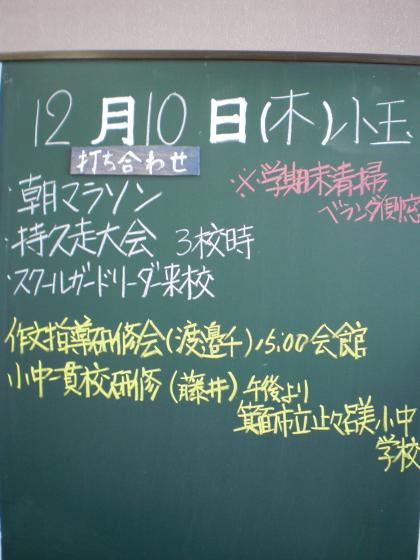 12月10日(木)小玉
打ち合わせ
・朝マラソン
・持久走大会 3校時
・スクールガードリーダー来校
※学期末清掃
ベランダ側窓
作文指導研修会(渡邉千)15:00会館
小中一貫校研修(藤井)午後より
箕面市立止々呂美小中
学校